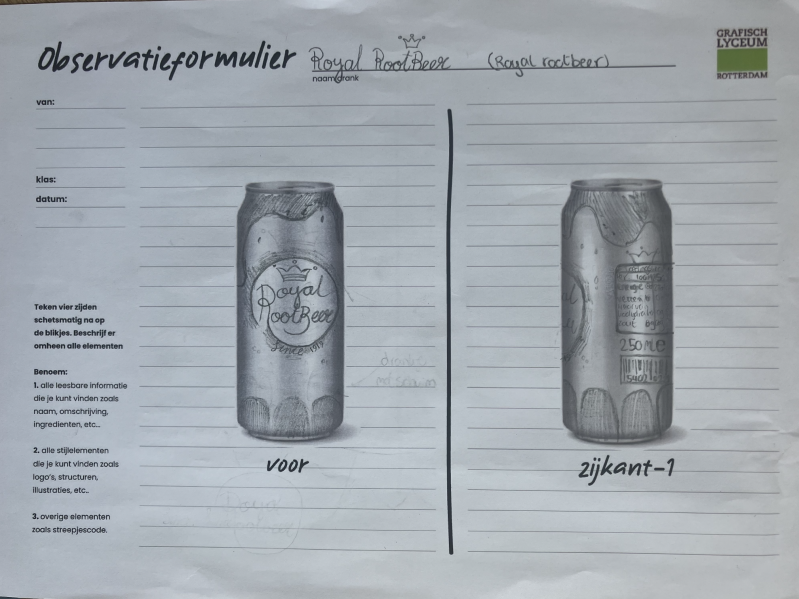 Observatieformulier Royal RootBeer (Royal rootbeer)
naam drank
GRAFISCH
LYCEUM
ROTTERDAM
van:
klas:
datum:
Teken vier zijden
schetsmatig na op
de blikjes. Beschrijf er
omheen alle elementen
Benoem:
1. alle leesbare informatie
die je kunt vinden zoals
naam, omschrijving,
ingredienten, etc...
2. alle stijlelementen
die je kunt vinden zoals
logo's, structuren,
illustraties, etc..
3. overige elementen
zoals streepjescode.
Royal
RootBeer
voor
250ml e
zijkant-1